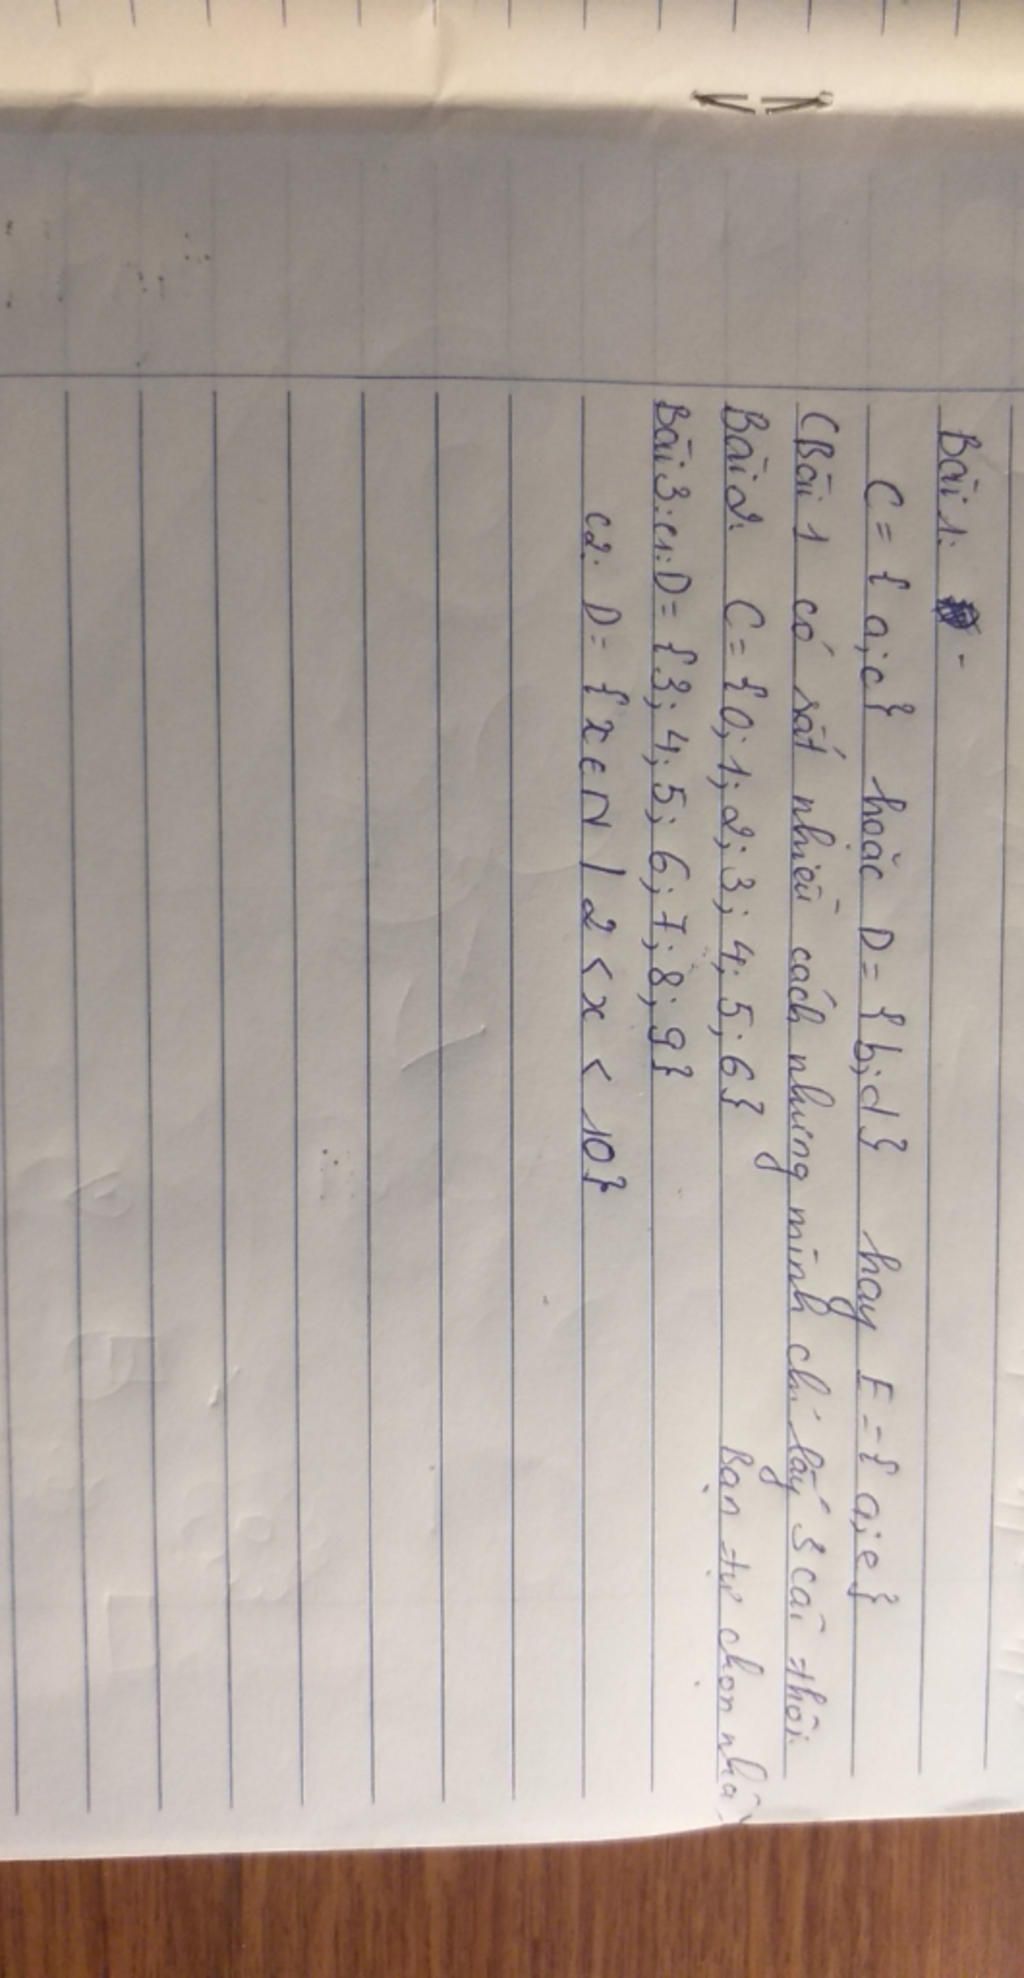 Bài 1:
C = { a; c } hoặc D = { b; d } hay E = { a; e }
(Bài 1 có rất nhiều cách nhưng mình chỉ lấy 3 cái thôi.
Bạn tự chọn nhá)
Bài 2: C = { 0; 1; 2; 3; 4; 5; 6 }
Bài 3: c1: D = { 3; 4; 5; 6; 7; 8; 9 }
c2: D = { x ∈ N | 2 < x < 10 }